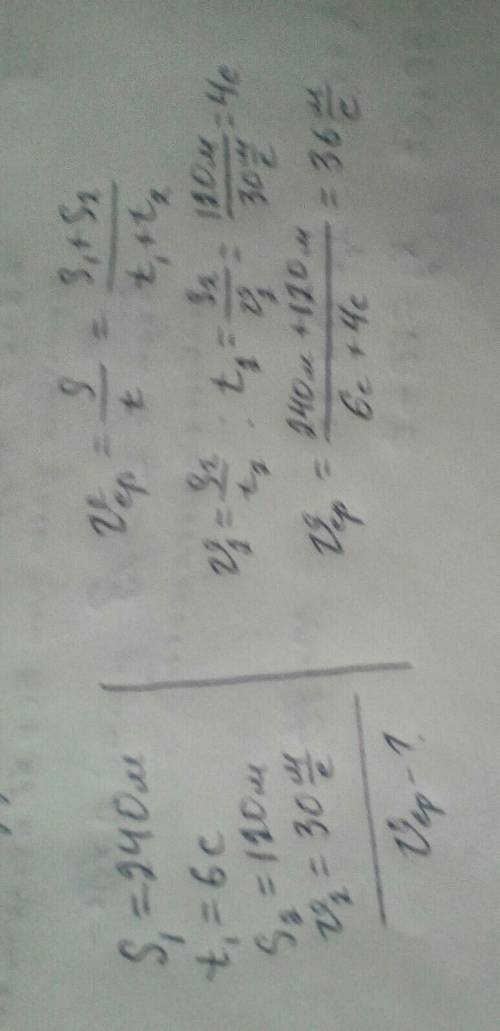 S₁ = 240 м
t₁ = 6 с
S₂ = 120 м
v₂ = 30 м/с
vср - ?
vср = S/t = (S₁ + S₂)/(t₁ + t₂)
v₂ = S₂/t₂ ; t₂ = S₂/v₂ = 120 м/30 м/с = 4 с
vср = (240 м + 120 м)/(6 с + 4 с) = 36 м/с